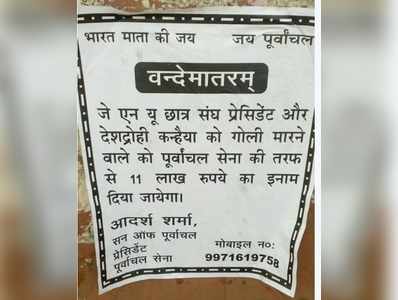 भारत माता की जय जय पूर्वांचल
वन्देमातरम्
जे एन यू छात्र संघ प्रेसिडेंट और
देशद्रोही कन्हैया को गोली मारने
वाले को पूर्वांचल सेना की तरफ
से 11 लाख रुपये का इनाम
दिया जायेगा।
आदर्श शर्मा,
सन ऑफ पूर्वांचल
प्रेसिडेंट मोबाइल न०:
पूर्वांचल सेना 9971619758